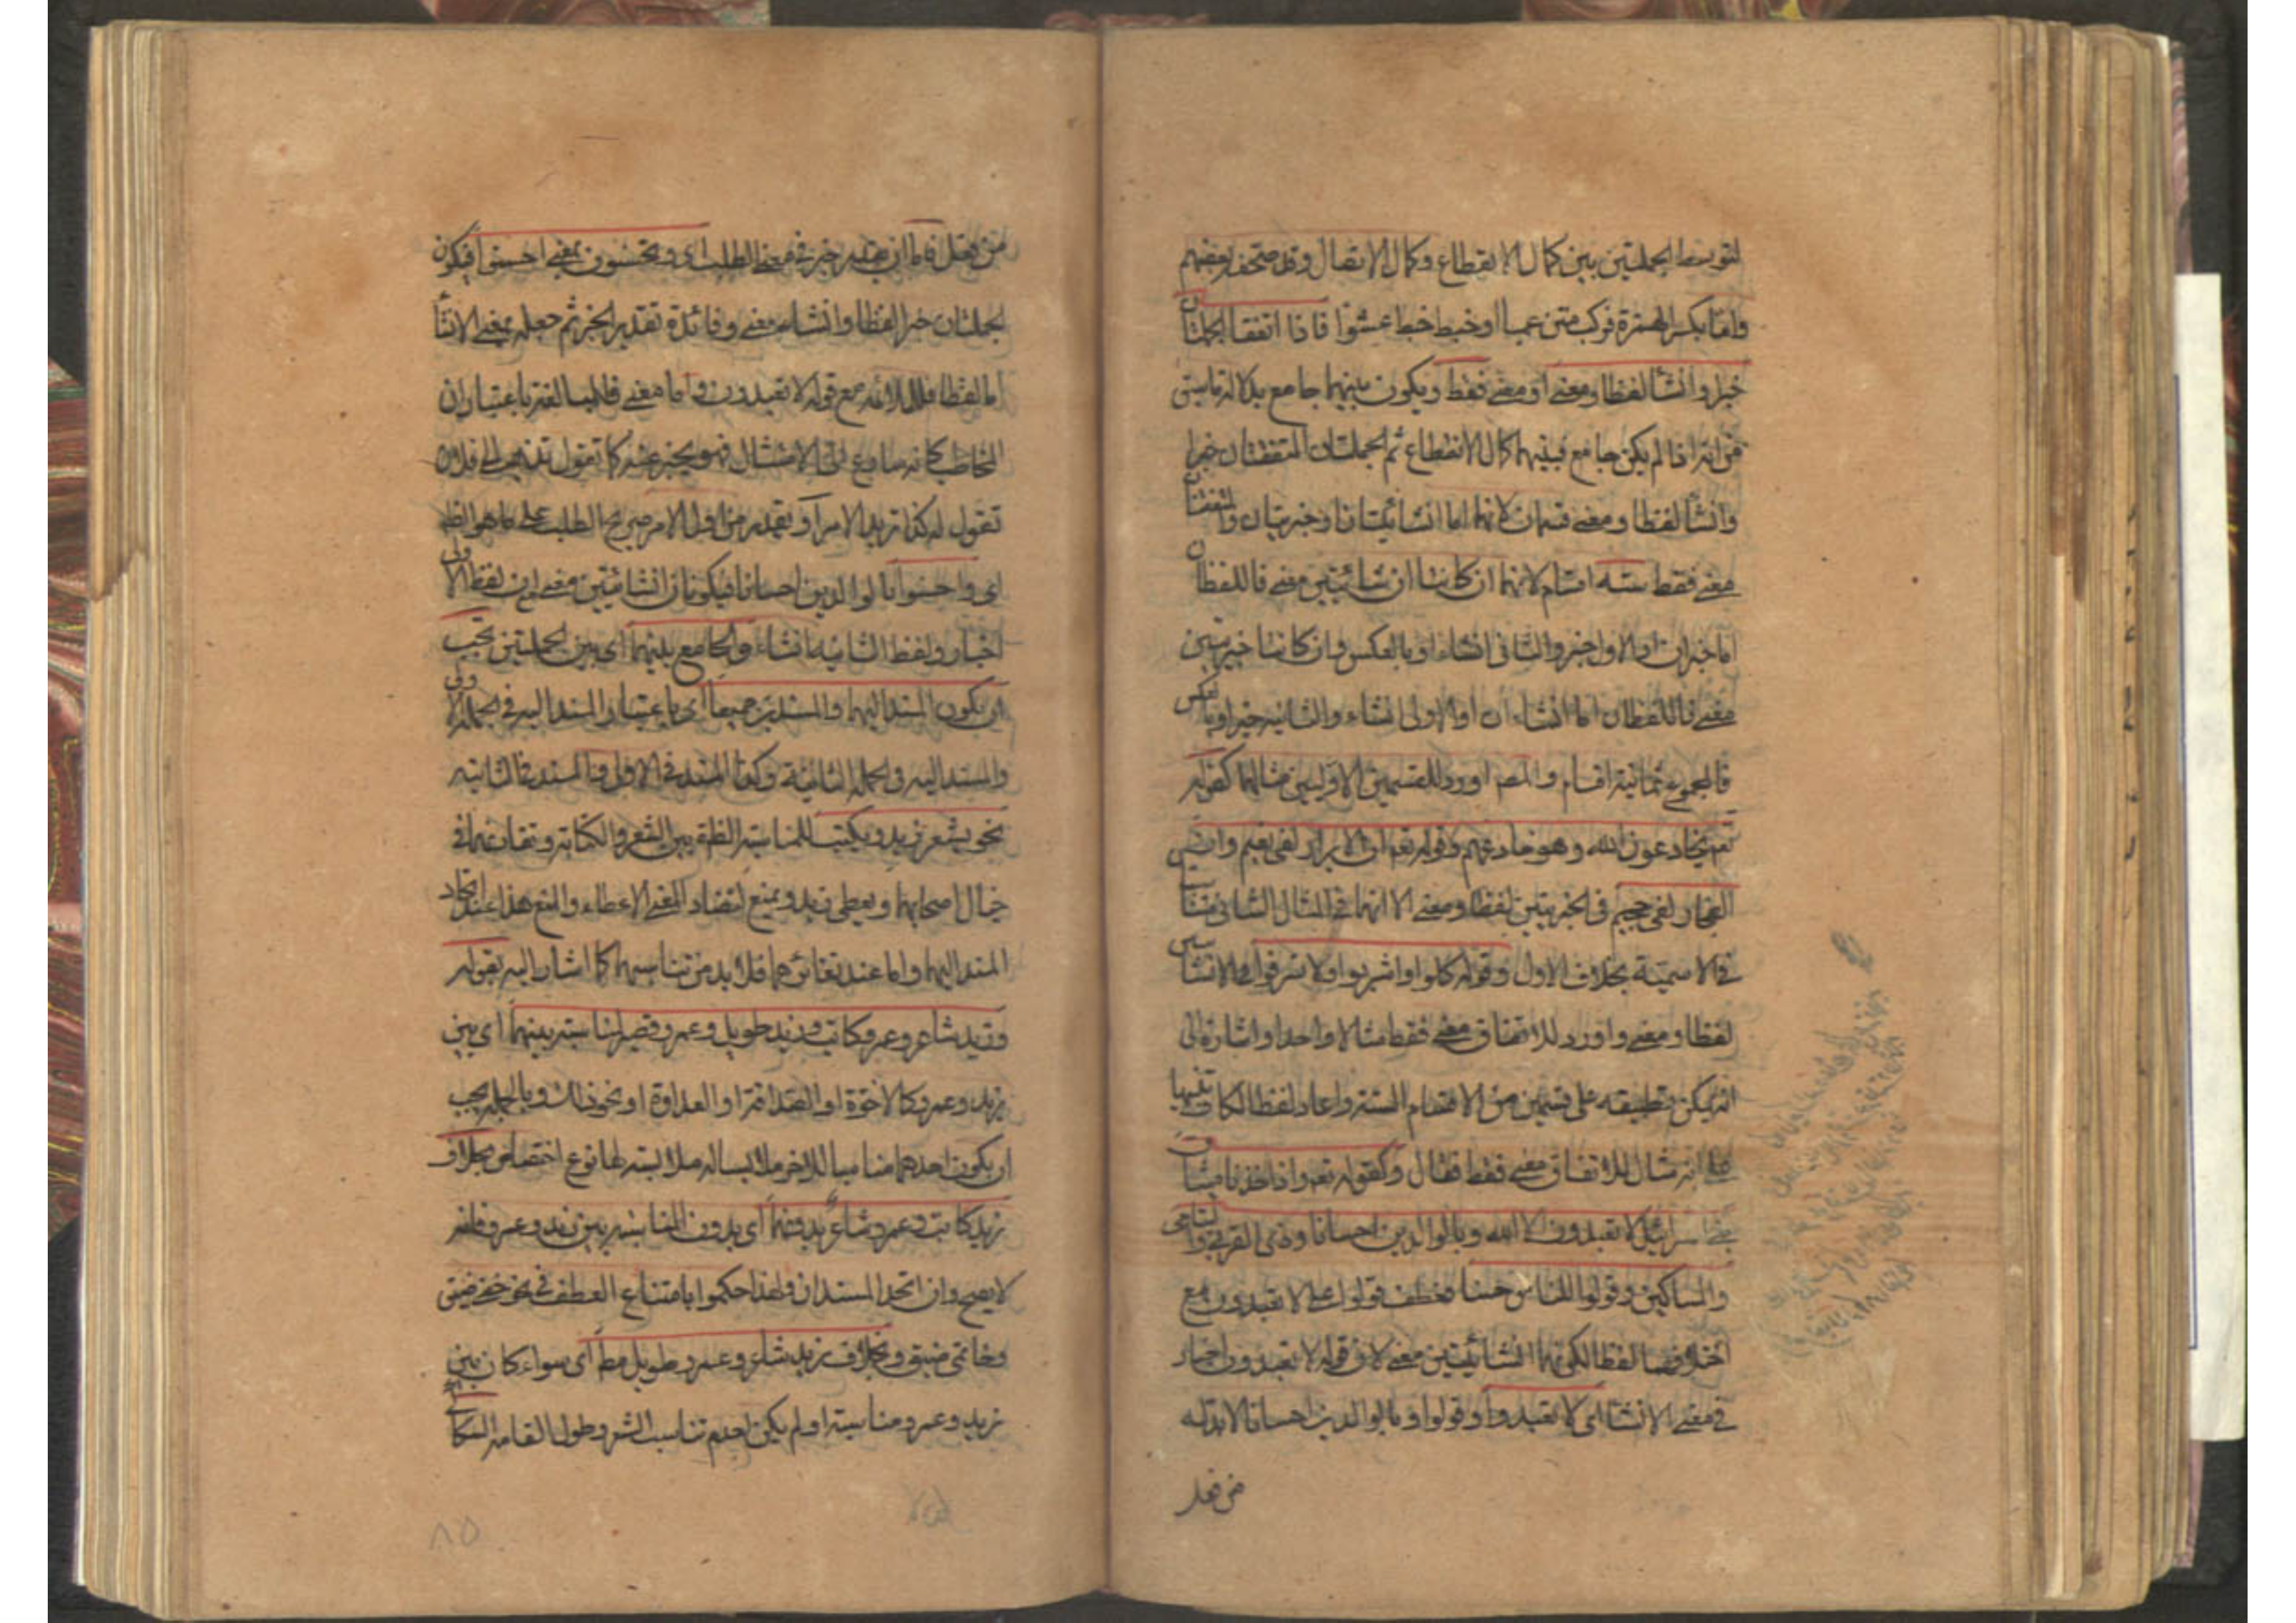 لتوسط الجملتين بين كمال الانقطاع وكمال الاتصال وقد صحف بعضهم
واما بكسر الهمزة فركب متن عميا او خبط خبط عشوا فاذا اتفقا الجملتان
خبرا وانشأ لفظا ومعنى او معنى فقط ويكون بينهما جامع بدلالة ما سبق
من انه اذا لم يكن جامع فبينهما كمال الانقطاع ثم الجملتان المتفقتان خبرا
وانشأ لفظا ومعنى قسمان لانهما اما انشائيتان او خبريتان والمتفقتان
معنى فقط ستة اقسام لانهما ان كانتا انشائيتين معنى فاللفظان
اما خبران او الاول خبر والثانى انشاء او بالعكس وان كانتا خبريتين
معنى فاللفظان اما انشاءان او الاولى انشاء والثانية خبر او بالعكس
فالمجموع ثمانية اقسام والمصـ اورد للقسمين الاوليين مثالهما كقوله
تعـ يخادعون الله وهو خادعهم وقوله تعـ ان الابرار لفى نعيم وان
الفجار لفى جحيم فى الخبريتين لفظا ومعنى الا انهما فى المثال الثانى متناسبتين
فى الاسمية بخلاف الاول وقوله كلوا واشربوا ولا تسرفوا فى الانشائيتين
لفظا ومعنى واورد للاتفاق معنى فقط مثالا واحدا واشارة الى
انه يمكن تطبيقه على قسمين من الاقسام الستة واعاد لفظ الكاف تنبيها
على انه مثال للاتفاق معنى فقط فقال وكقوله تعـ واذ اخذنا ميثاق
بنى اسرائيل لا تعبدون الا الله وبالوالدين احسانا وذى القربى واليتامى
والمساكين وقولوا للناس حسنا فعطف قولوا على لا تعبدون مع
اختلافهما لفظا لكنهما انشائيتين معنى لان قوله لا تعبدون اخبار
فى معنى الانشاء اى لا تعبدوا وقولوا وبالوالدين احسانا لابد له
من فعل
من فعل فاما ان يقدر خبر فى معنى الطلب اى وتحسنون بمعنى احسنوا فيكون
الجملتان خبرا لفظا وانشاء معنى وفائدة تقدير الخبر ثم جعله بمعنى الانشأ
اما لفظا فلملائمة مع قوله لا تعبدون واما معنى فالمبالغة باعتبار ان
المخاطب كانه سارع الى الامتثال فهو يخبر عنه كما تقول تذهب الى فلان
تقول له كذا تريد الامر او يقدر من اول الامر صريح الطلب على ما هو الظـ
اى واحسنوا بالوالدين احسانا فيكونان انشائيتين معنى مع ان لفظ الاولى
اخبار ولفظ الثانية انشاء والجامع بينهما اى بين الجملتين يجب
ان يكون المسند اليهما والمسندين جميعا اى باعتبار المسند اليه فى الجملة الاولى
والمسند اليه فى الجملة الثانية وكذا المسند فى الاول والمسند فى الثانية
نحو يشعر زيد ويكتب للمناسبة الظـة بين الشعر والكتابة وتقارنهما فى
خيال اصحابهما ويعطى زيد ويمنع لتضاد المعنى الاعطاء والمنع هذا عند اتحاد
المسند اليهما واما عند تغايرهما فلابد من تناسبهما كما اشار اليه بقوله
وزيد شاعر وعمرو كاتب وزيد طويل وعمرو قصير لمناسبة بينهما اى بين
زيد وعمرو كالاخوة او الصداقة او العداوة او نحو ذلك وبالجملة يجب
ان يكون احدهما مناسبا للاخر ملابسا له ملابسة لها نوع اختصاص بخلاف
زيد كاتب وعمرو شاعر بدونها اى بدون المناسبة بين زيد وعمرو فانه
لا يصح وان اتحد المسندان ولهذا حكموا بامتناع العطف فى نحو خفى ضيق
وخاتمى ضيق وبخلاف زيد شاعر وعمرو طويل مطـ اى سواء كان بين
زيد وعمرو مناسبة او لم يكن لعدم تناسب الشعر وطول القامة السكاكى
٨٥